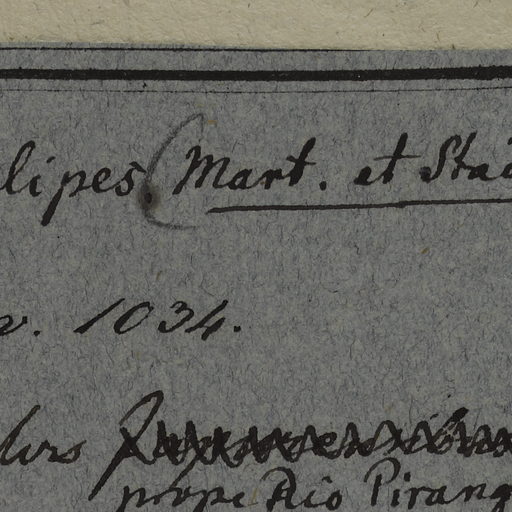 lipes (Mart. et Sta
v. 1034.
prope Rio Pirang